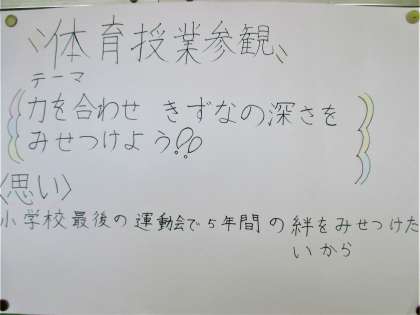 体育授業参観
テーマ
力を合わせ きずなの深さを
みせつけよう!?
〈思い〉
小学校最後の運動会で5年間の絆をみせつけた
いから